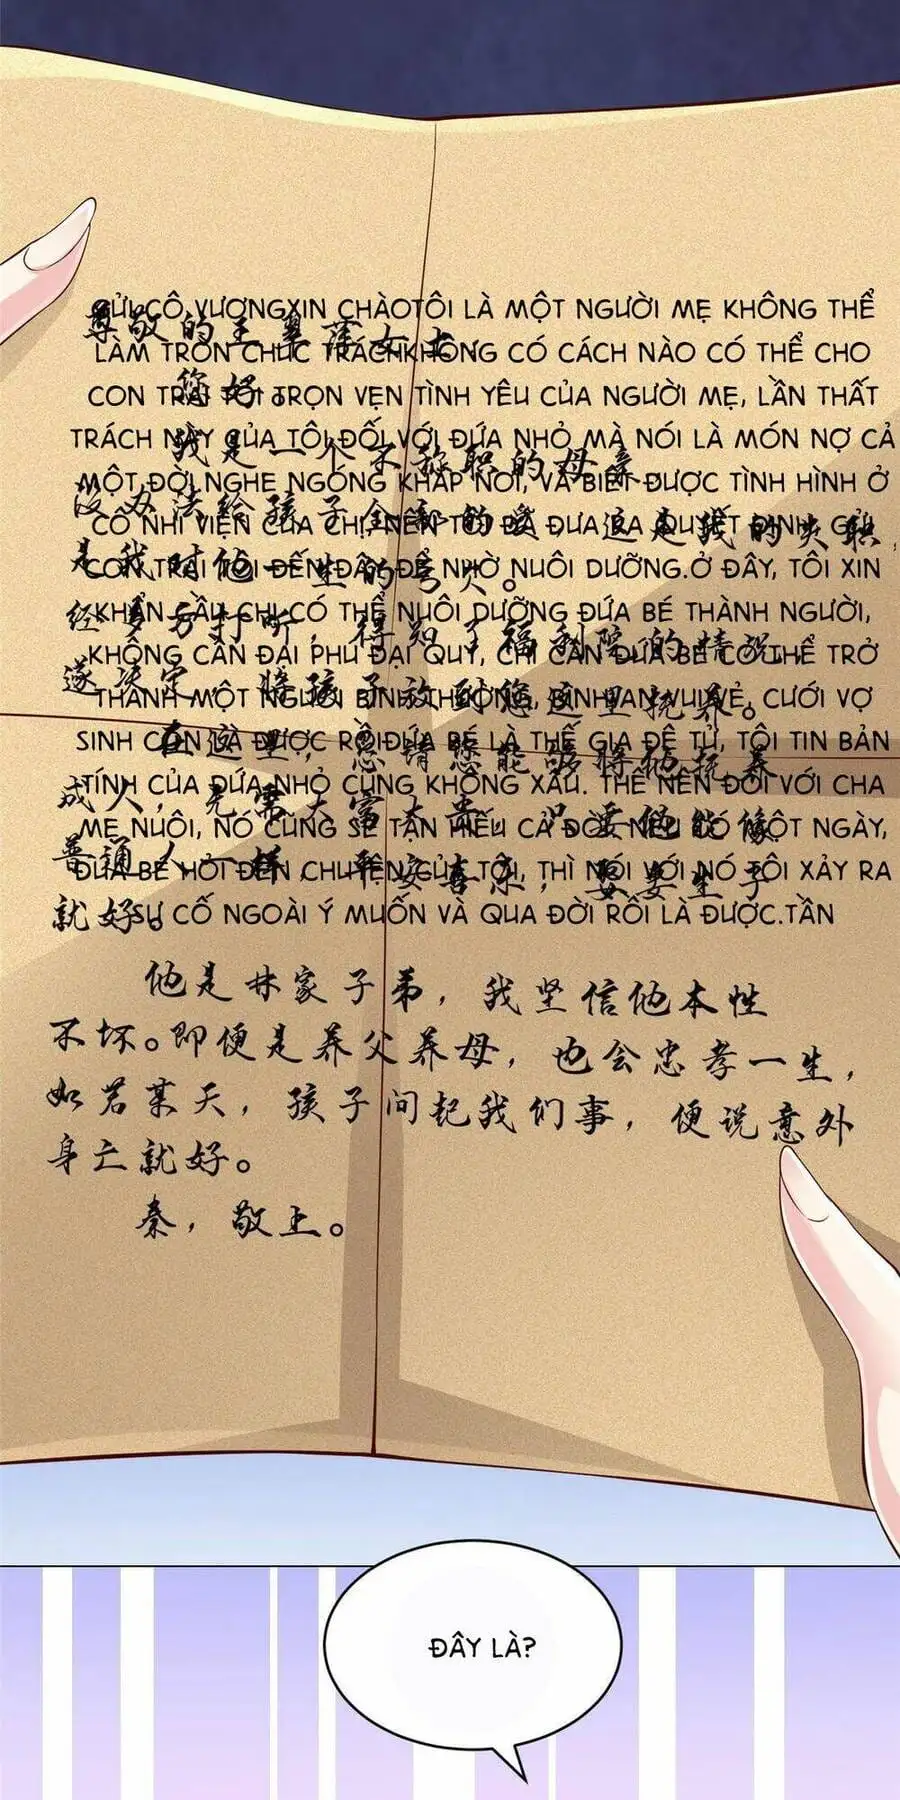 GỬI CÔ VƯƠNGXIN CHÀOTÔI LÀ MỘT NGƯỜI MẸ KHÔNG THỂ
LÀM TRÒN CHỨC TRÁCHKHÔNG CÓ CÁCH NÀO CÓ THỂ CHO
CON TRAI TÔI TRỌN VẸN TÌNH YÊU CỦA NGƯỜI MẸ, LẦN THẤT
TRÁCH NÀY CỦA TÔI ĐỐI VỚI ĐỨA NHỎ MÀ NÓI LÀ MÓN NỢ CẢ
MỘT ĐỜI NGHE NGÓNG KHẮP NƠI, VÀ BIẾT ĐƯỢC TÌNH HÌNH Ở
CÔ NHI VIỆN CỦA CHỊ, NÊN TÔI ĐÃ ĐƯA RA QUYẾT ĐỊNH, GỬI
CON TRAI TÔI ĐẾN ĐÂY ĐỂ NHỜ NUÔI DƯỠNG.Ở ĐÂY, TÔI XIN
KHẨN CẦU CHỊ CÓ THỂ NUÔI DƯỠNG ĐỨA BÉ THÀNH NGƯỜI,
KHÔNG CẦN ĐẠI PHÚ ĐẠI QUÝ, CHỈ CẦN ĐỨA BÉ CÓ THỂ TRỞ
THÀNH MỘT NGƯỜI BÌNH THƯỜNG, BÌNH AN VUI VẺ, CƯỚI VỢ
SINH CON LÀ ĐƯỢC RỒIĐỨA BÉ LÀ THẾ GIA ĐỆ TỬ, TÔI TIN BẢN
TÍNH CỦA ĐỨA NHỎ CŨNG KHÔNG XẤU. THẾ NÊN ĐỐI VỚI CHA
MẸ NUÔI, NÓ CŨNG SẼ TẬN HIẾU CẢ ĐỜI, NẾU CÓ MỘT NGÀY,
ĐỨA BÉ HỎI ĐẾN CHUYỆN CỦA TÔI, THÌ NÓI VỚI NÓ TÔI XẢY RA
SỰ CỐ NGOÀI Ý MUỐN VÀ QUA ĐỜI RỒI LÀ ĐƯỢC.TẦN
您好。
我是一个不称职的母亲
没办法给孩子全部的爱，这是我的失职，
是我对他一生的亏欠。
经多方打听，得知了福利院的情况，
遂决定，将孩子放到您这里抚养。
在这里，恳请您能够将他抚养
成人，无需大富大贵，只要他能像
普通人一样，平安喜乐，娶妻生子
就好。
他是林家子弟，我坚信他本性
不坏。即便是养父养母，也会忠孝一生，
如若某天，孩子问起我们事，便说意外
身亡就好。
秦，敬上。
ĐÂY LÀ?